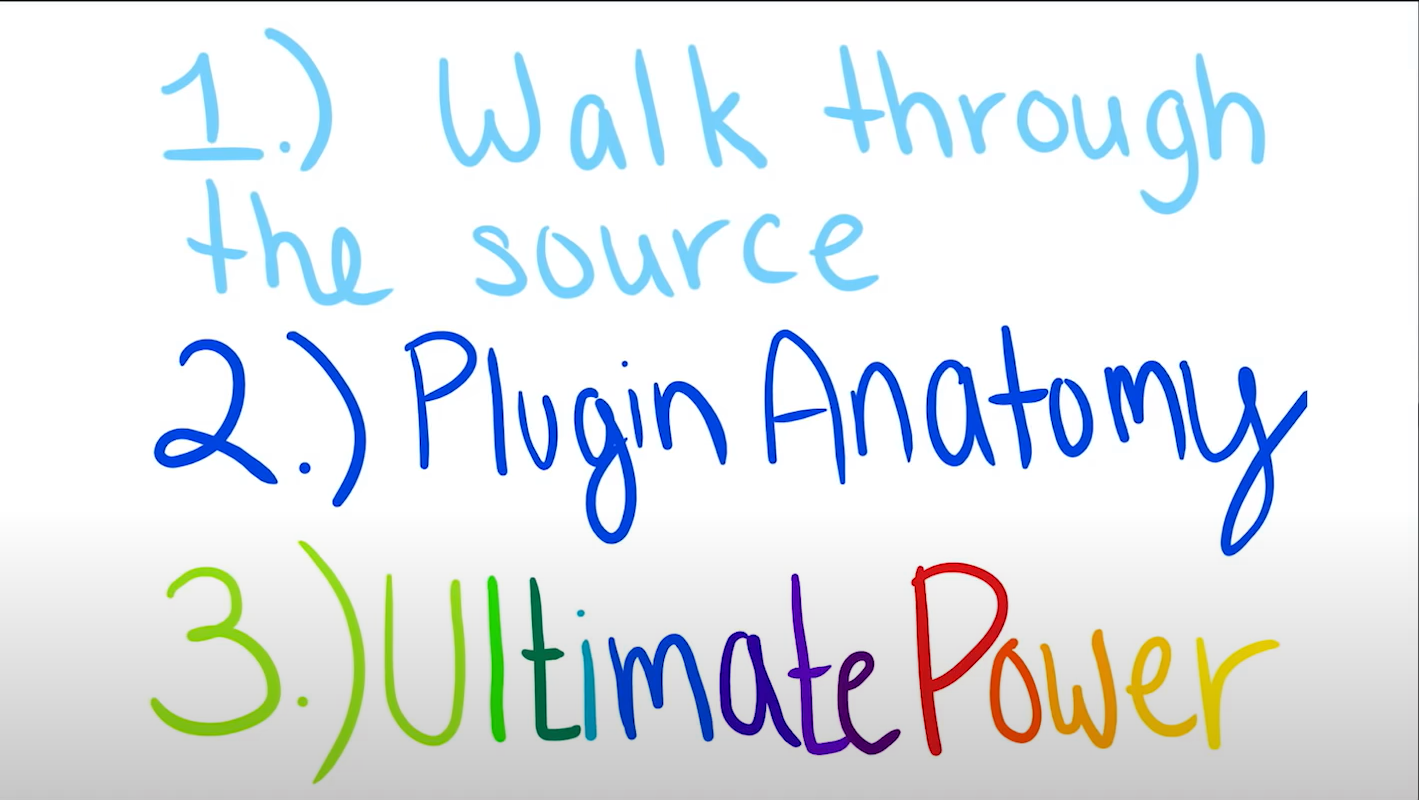 1.) Walk through
the source
2.) Plugin Anatomy
3.) Ultimate Power